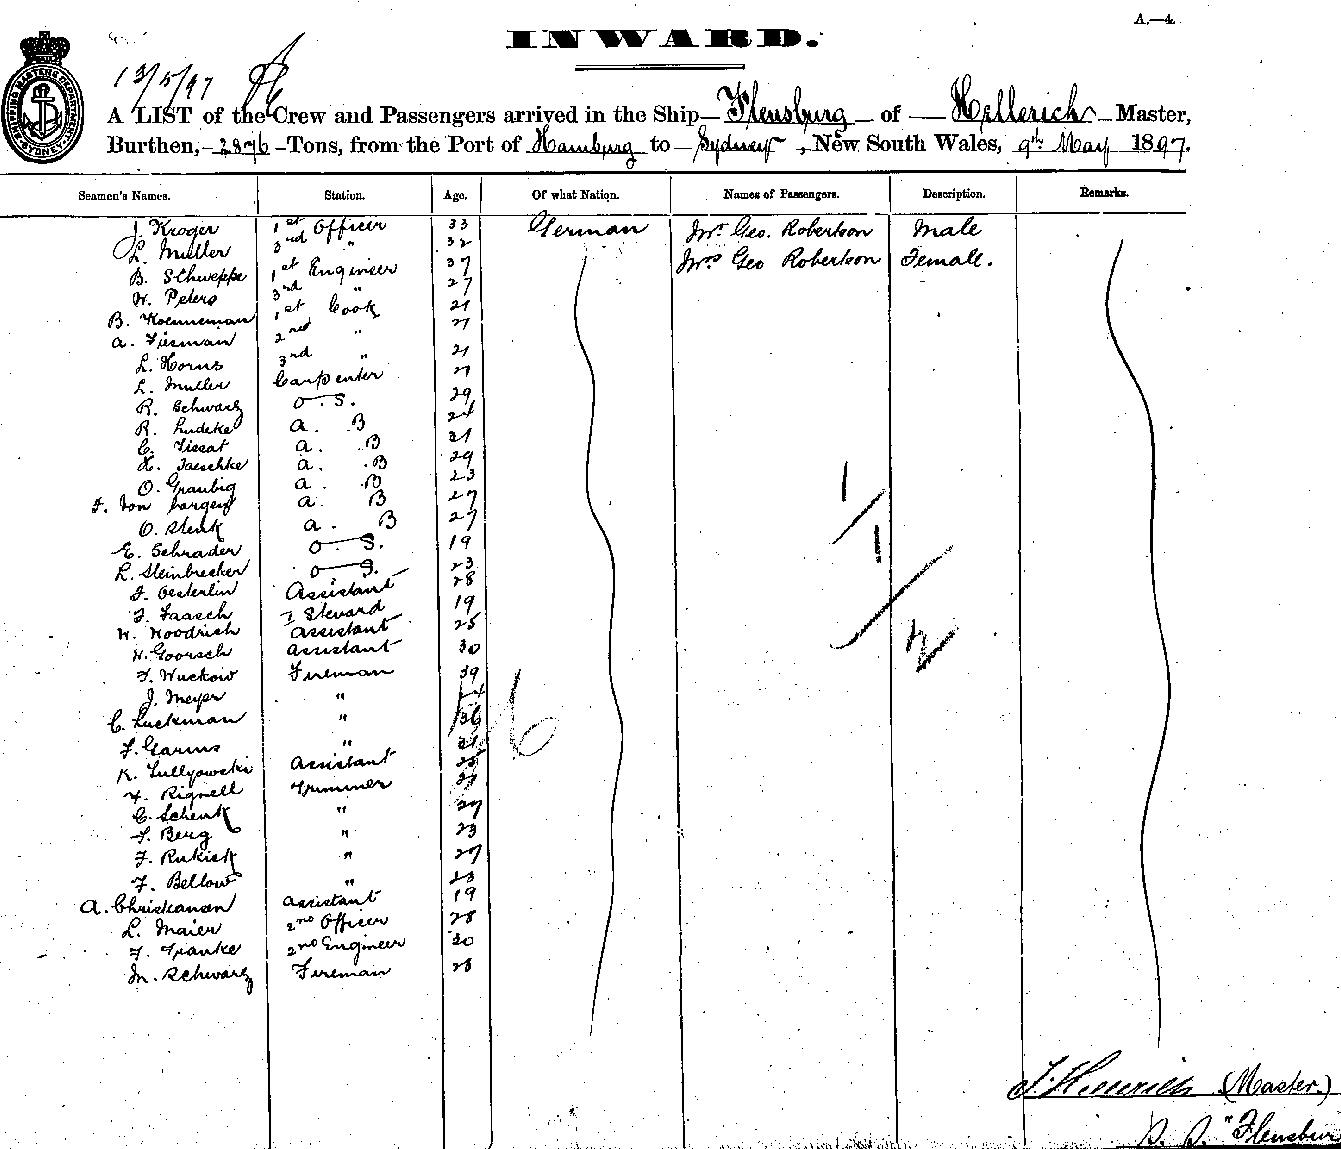 A.—4.
INWARD.
13/5/97
A LIST of the Crew and Passengers arrived in the Ship— Flensburg — of — Hellerich — Master,
Burthen,— 2876 —Tons, from the Port of Hamburg to — Sydney , New South Wales, 9th May 1897.
Seamen's Names. Station. Age. Of what Nation. Names of Passengers. Description. Remarks.
J. Kroger 1st Officer 33 German Mr. Geo. Robertson Male
L. Muller 3nd " 32 Mrs Geo Robertson Female.
B. Schweppe 1st Engineer 37
W. Peters 3rd " 27
B. Koenneman 1st Cook 21
A. Tiesman 2nd " 21
L. Horns 3rd " 21
L. Muller Carpenter 21
R. Schwarz O. S. 29
R. Ludeke A. B 24
C. Tissat A. B 31
H. Jaeschke A. B 29
O. Graubig A. B 23
F. Von A. B 27
O. Stenk A. B 27
E. Schrader O. S. 19
L. Steinbrecker O S. 23
F. Oesterlin Assistant 28
F. Faasch I Stevard 19
W. Woodrich Assistant 25
W. Goorsch Assistant 30
F. Wuckow Fireman 39
J. Meyer "
C. Luckman " 36
F. Garms "
K. Assistant
F. Rignell Trimmer
C. Schenk " 27
F. Berg " 23
F. Rukick " 27
F. Bellow " 23
A. Christiansen Assistant 19
L. Maier 2nd Officer 28
F. Franke 2nd Engineer 30
M. Schwarz Fireman 28
1/1/2
(Master.)
S. S. "Flensbur